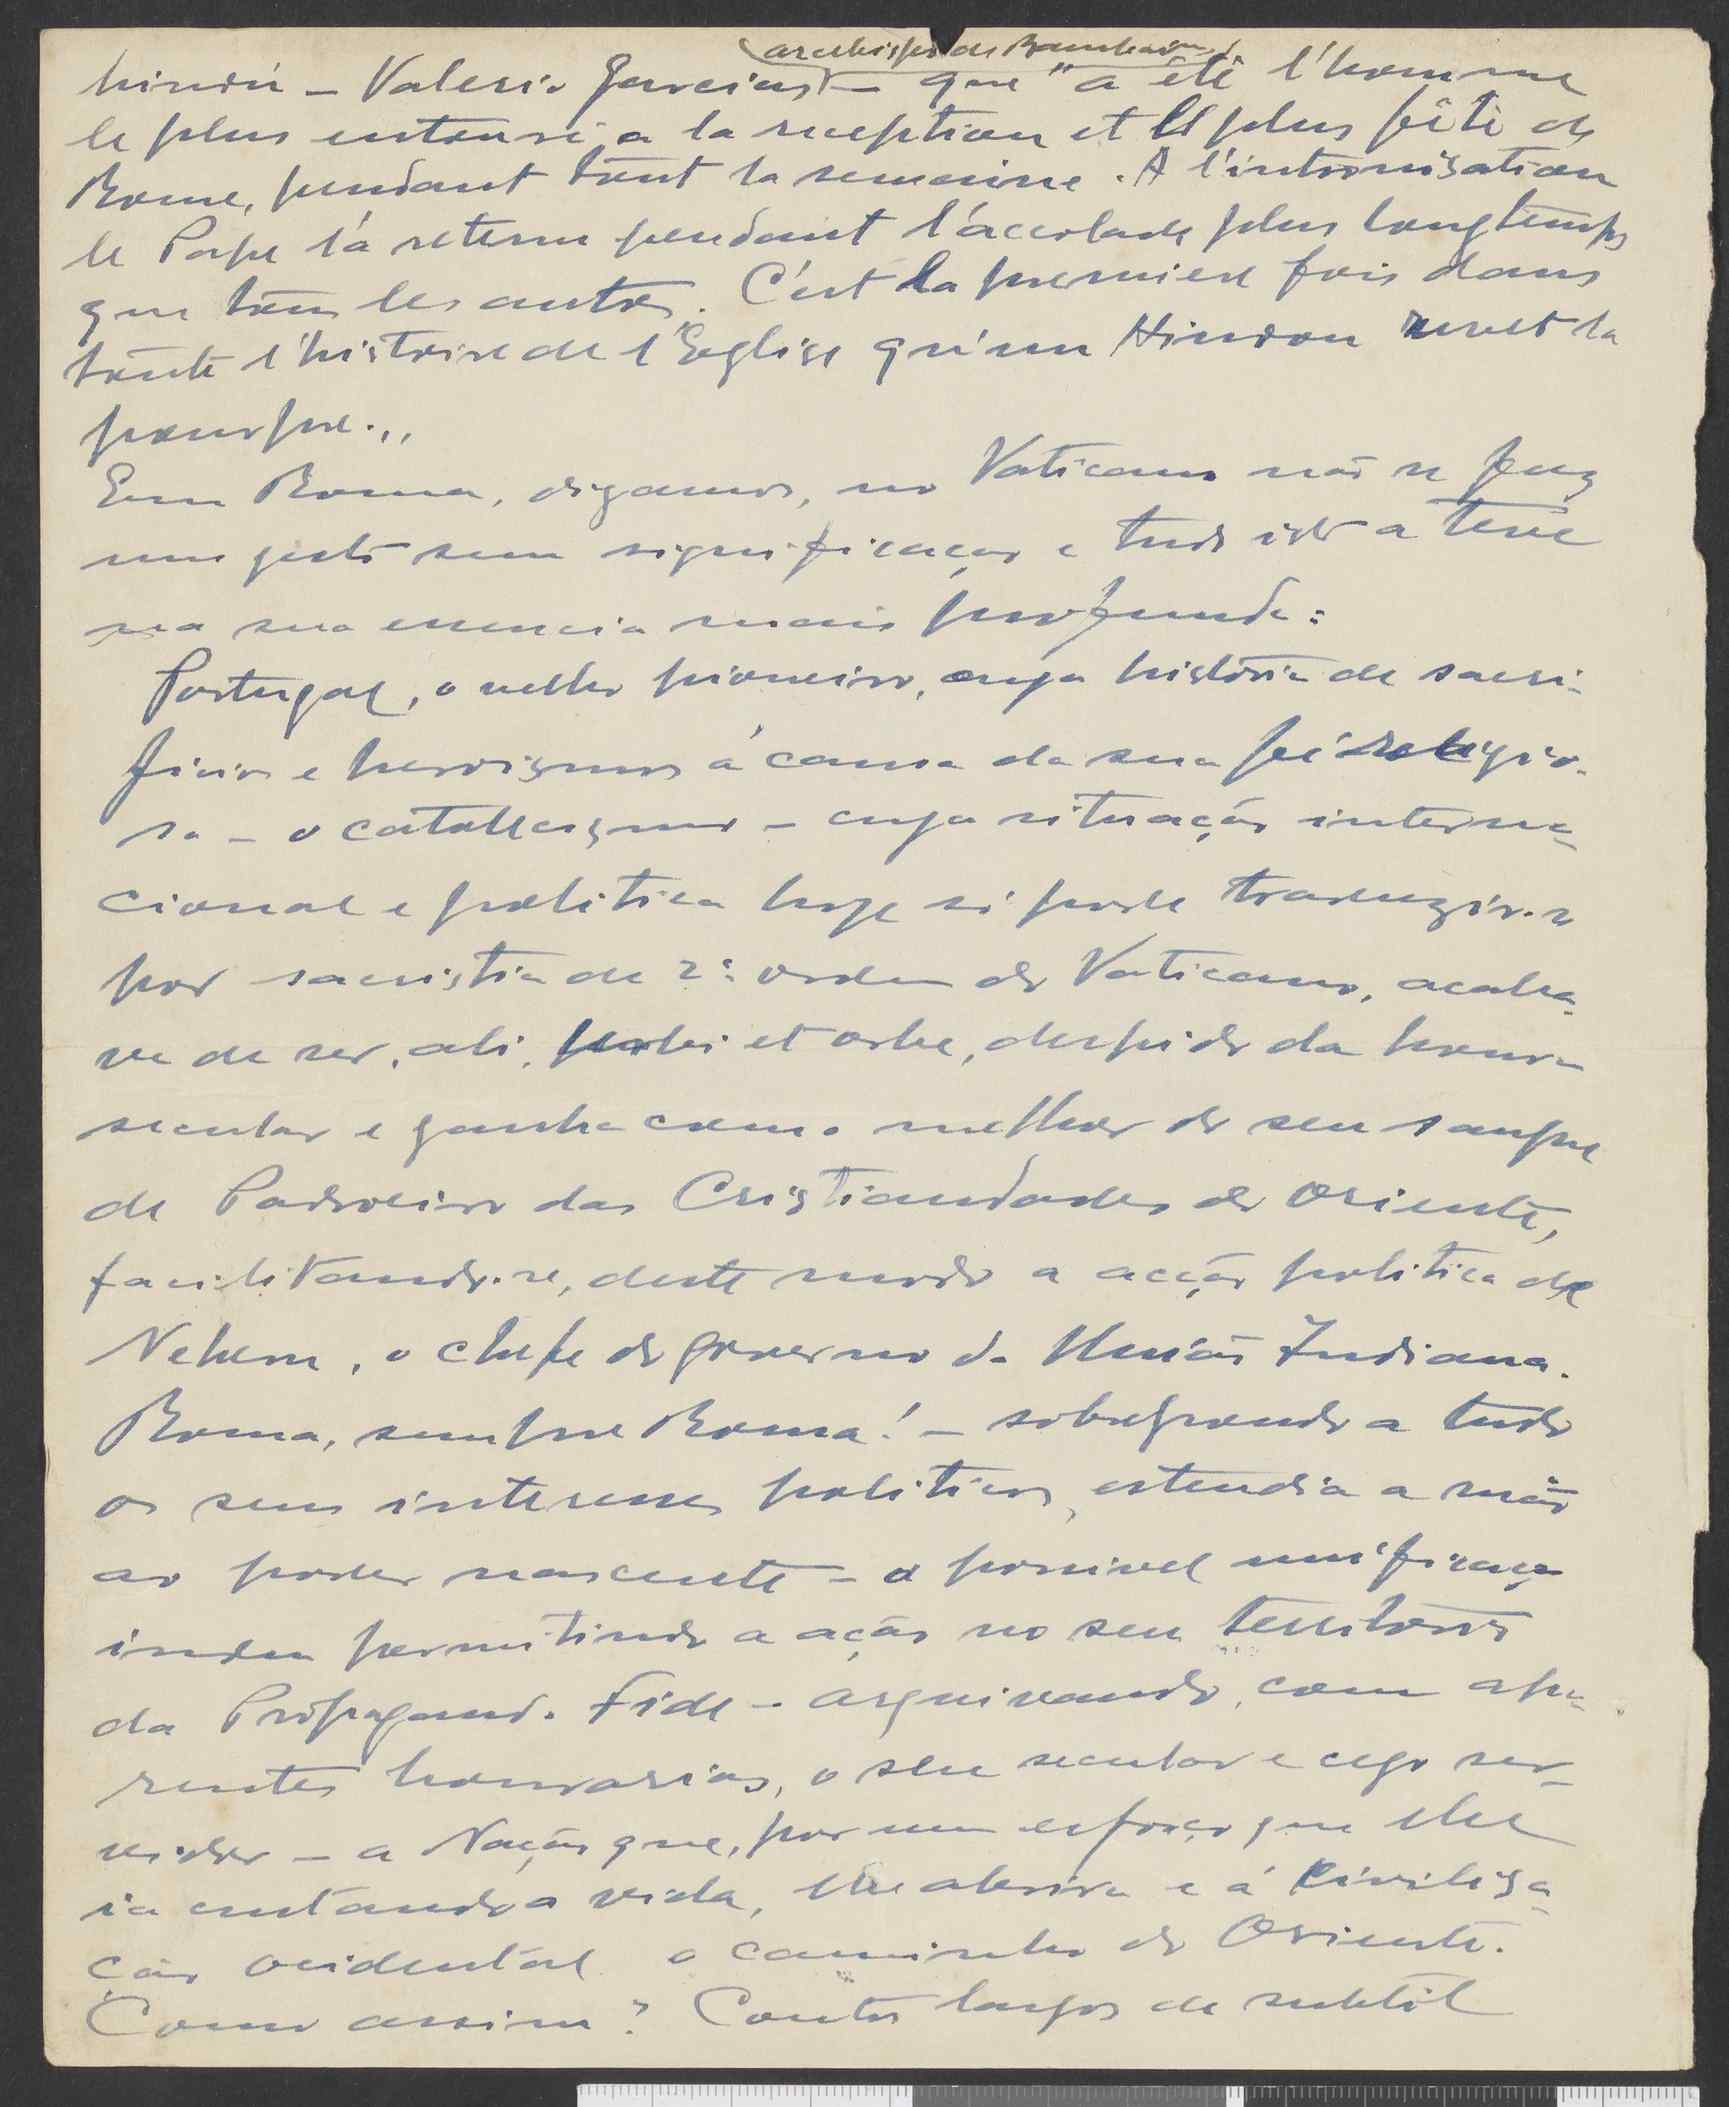 (arcebispo de Bombaim)
hindú – Valerio Gracias – que "a été l'homme
le plus entouré a la reception et le plus fêté de
Rome, pendant tout la semaine. A l'intronisation
le Pape l'a retenu pendant l'accolade plus longtemps
que tous les autres. C'est la premiere fois dans
toute l'histoire de l'Eglise qu'un Hindou revet la
pourpre.,,
Em Roma, digamos, no Vaticano não se faz
um gesto sem significação e tudo isto a teve
na sua essencia mais profunda:
Portugal, o velho pioneiro, cuja história de sacri-
ficios e heroismos á causa da sua fé religio-
sa – o catolicismo – cuja situação interna-
cional e politica hoje só pode traduzir-se
por sacristia de 2ª ordem do Vaticano, acaba-
va de ser, ali, urbi et orbe, despido da honra
secular e ganha com o melhor do seu sangue
de Padroeiro das Cristiandades do Oriente,
facilitando-se, deste modo a acção politica de
Neheru, o chefe do governo da União Indiana.
Roma, sempre Roma! – sobrepondo a tudo
os seus interesses politicos, estendia a mão
ao poder nascente – a possivel unificação
indu permitindo a ação no seu territorio
da Propaganda Fide – arquivando, com apa-
rentes honrarias, o seu secular e cego ser-
vidor – a Nação que, por um esforço que lhe
ia custando a vida, lhe abrira e á civiliza-
ção ocidental o caminho do Oriente.
Como assim? Contos largos de subtil